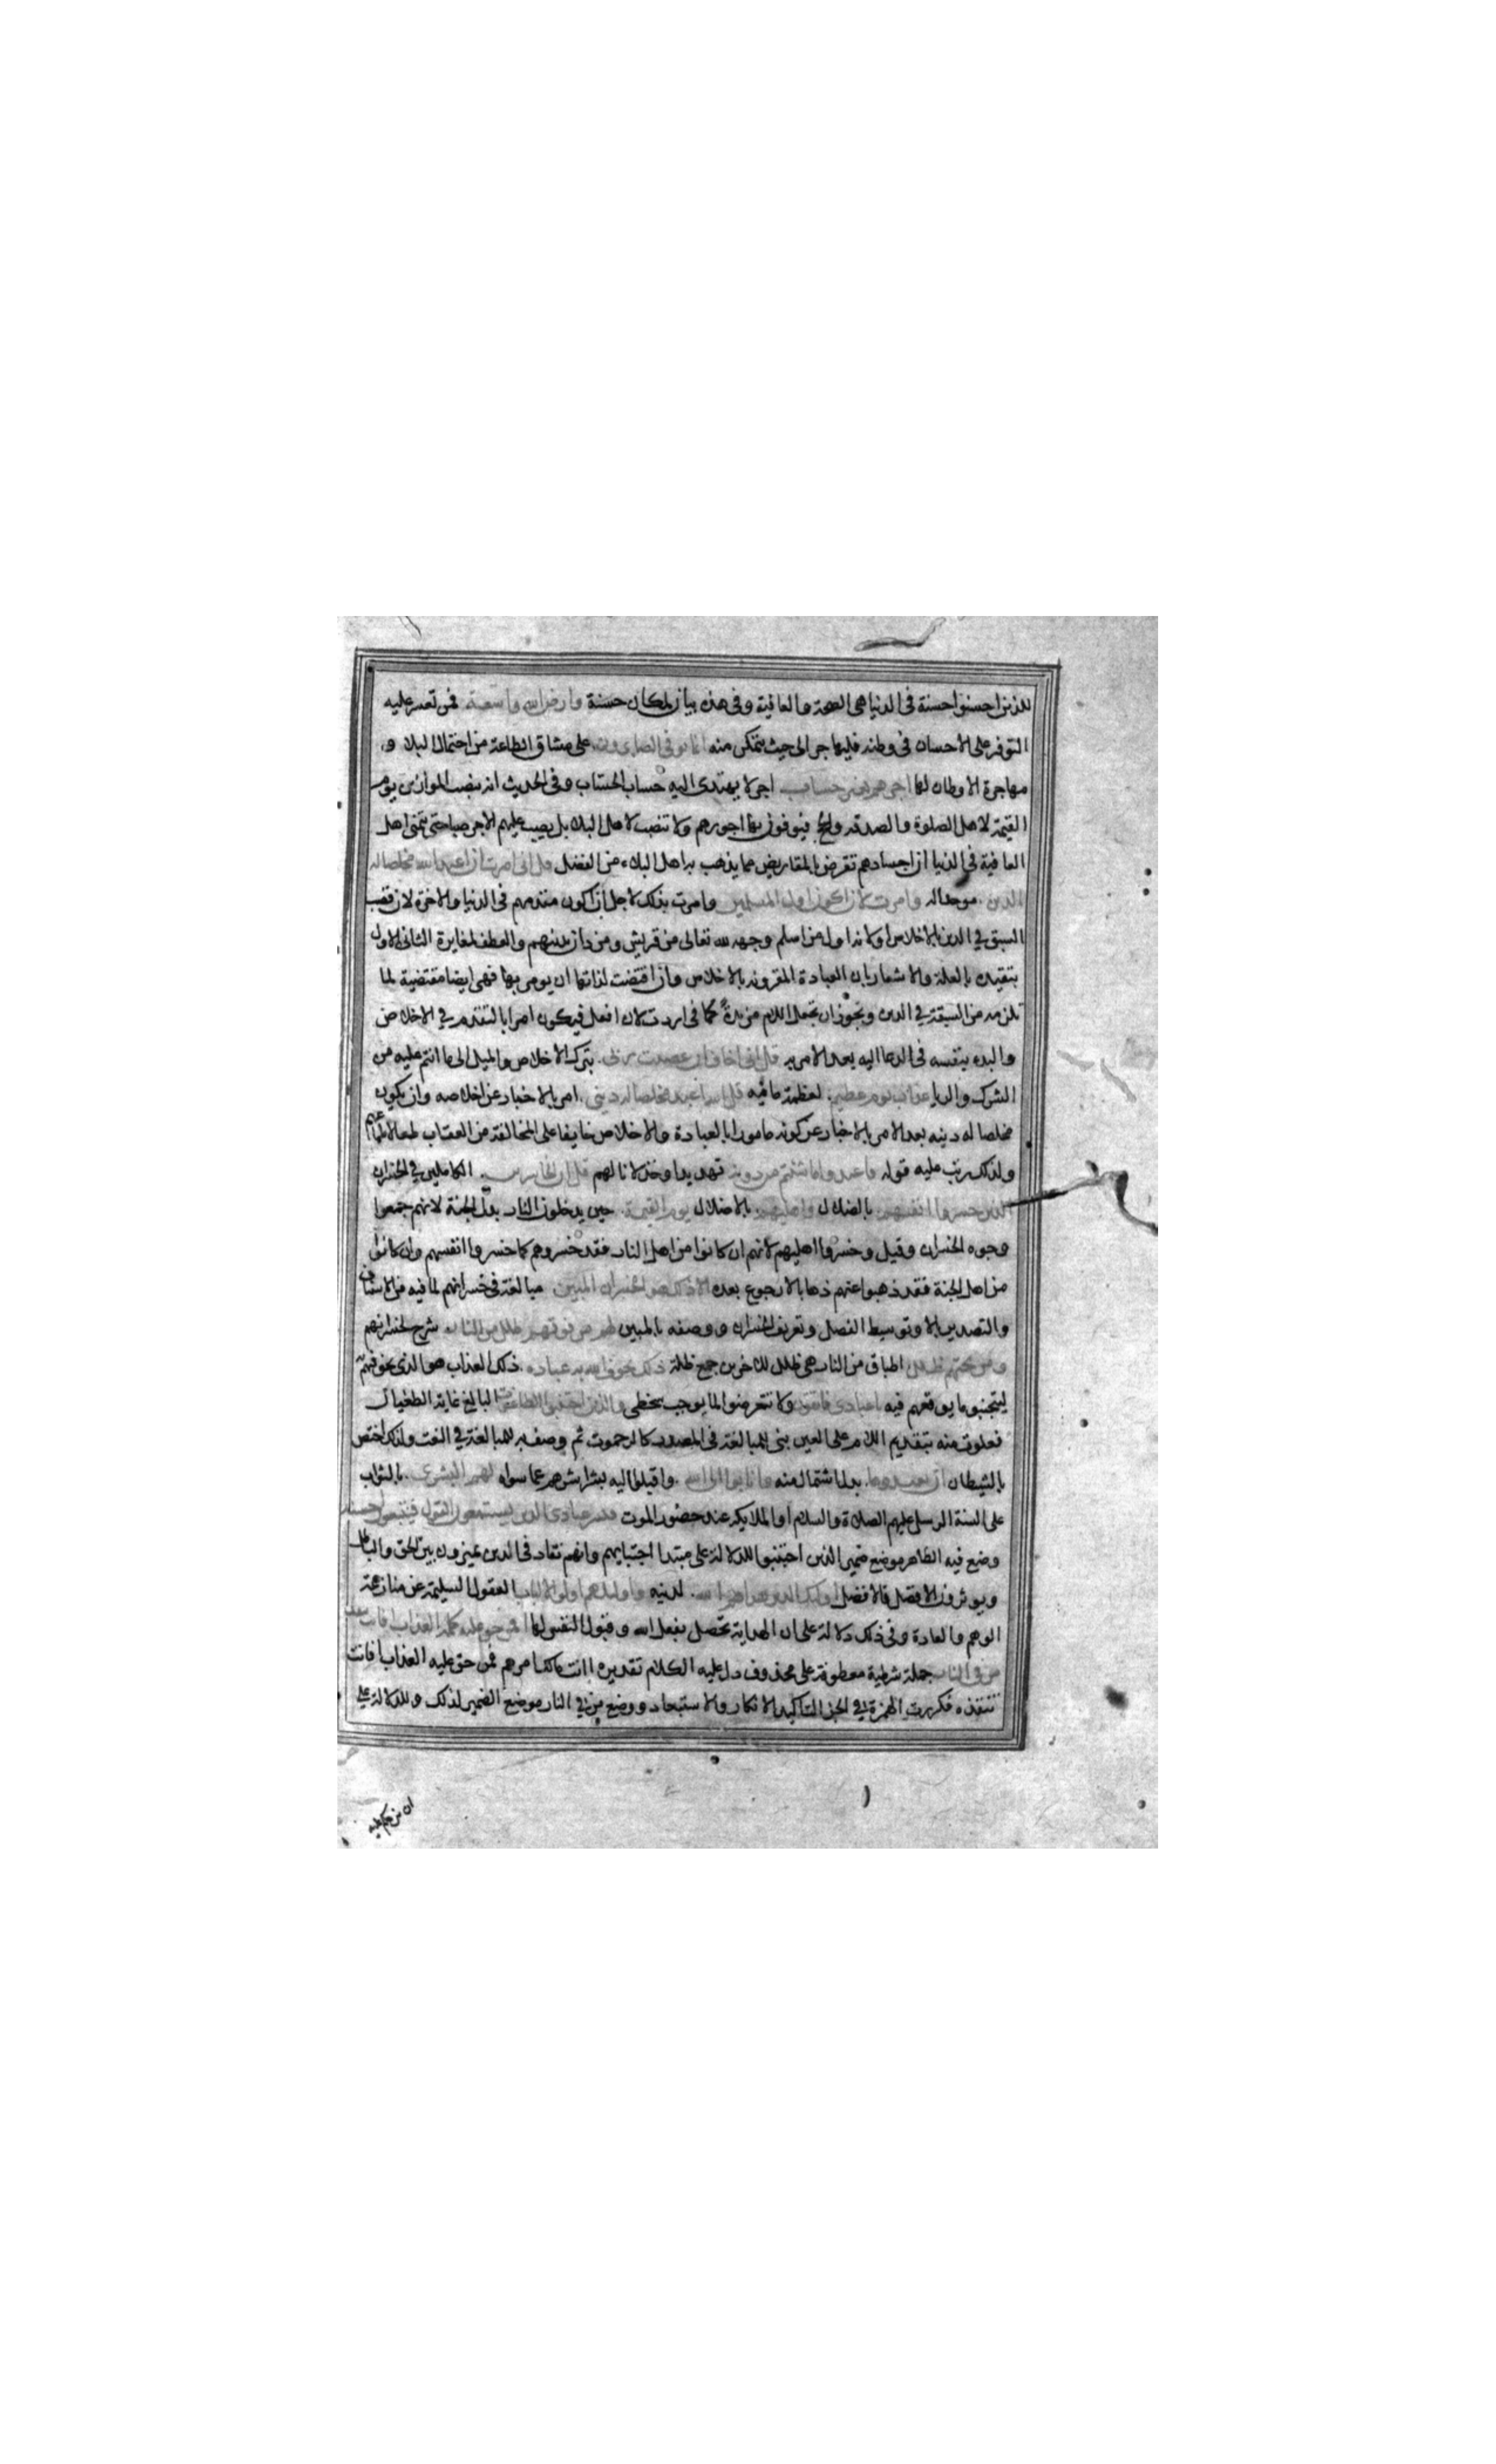 للذين احسنوا حسنة في الدنيا هي الصحة والعافية وفي هذه بيان لمكان حسنة وارض الله واسعة فمن تعسر عليه
التوفر على الاحسان في وطنه فليهاجر الى حيث يتمكن منه انما يوفى الصابرون على مشاق الطاعة من احتمال البلاء و
مهاجرة الاوطان لها اجرهم بغير حساب اجرا لا يهتدى اليه حساب الحساب وفي الحديث انه ينصب الموازين يوم
القيمة لاهل الصلوة والصدقه والحج فيوفون بها اجورهم ولا تنصب لاهل البلاء بل يصب عليهم الاجر صبا حتى يتمنى اهل
العافية في الدنيا ان اجسادهم تقرض بالمقاريض مما يذهب به اهل البلاء من الفضل قل انى امرت ان اعبد الله مخلصا له
الدين موحدا له وامرت لان اكون اول المسلمين وامرت بذلك لاجل ان اكون مقدمهم في الدنيا والاخرة لان قصب
السبق في الدين بالاخلاص او لانه اول من اسلم وجهه لله تعالى من قريش ومن دان بدينهم والعطف لمغايرة الثاني الاول
بتقيده بالعلة والاشعار بان العبادة المقرونه بالاخلاص وان اقتضت لذاتها ان يومر بها فهي ايضا مقتضية لما
تلزمه من السبقة في الدين ويجوز ان تجعل اللام مزيدة كما في اردت لان افعل فيكون امرا بالتقدم في الاخلاص
والبدء بنفسه في الدعا اليه بعد الامر به قل انى اخاف ان عصيت ربى بترك الاخلاص والميل الى ما انتم عليه من
الشرك والريا عذاب يوم عظيم لعظمة ما فيه قل الله اعبد مخلصا له دينى امر بالاخبار عن اخلاصه وان يكون
مخلصا له دينه بعد الامر بالاخبار عن كونه مامورا بالعبادة والاخلاص خايفا على المخالفة من العقاب قطعا لاطماعهم
ولذلك رتب عليه قوله فاعبدوا ما شئتم من دونه تهديدا وخذلانا لهم قل ان الخاسرين الكاملين في الخسران
الذين خسروا انفسهم بالضلال واهليهم بالاضلال يوم القيمة حين يدخلون النار بدل الجنة لانهم جمعوا
وجوه الخسران وقيل وخسروا اهليهم لانهم ان كانوا من اهل النار فقد خسروهم كما خسروا انفسهم وان كانوا
من اهل الجنة فقد ذهبوا عنهم ذهابا لا رجوع بعده الا ذلك هو الخسران المبين مبالغة في خسرانهم لما فيه من الاستيناف
والتصدير بالا وتوسيط الفصل وتعريف الخسران ووصفه بالمبين لهم من فوقهم ظلل من النار شرح لخسرانهم
ومن تحتهم ظلل اطباق من النار هى ظلل للاخرين جمع ظلة ذلك يخوف الله به عباده ذلك العذاب هو الذي يخوفهم به
ليتجنبوا ما يوقعهم فيه يا عبادى فاتقون ولا تتعرضوا لما يوجب سخطى والذين اجتنبوا الطاغوت البالغ غاية الطغيان
فعلوت منه بتقديم اللام على العين بنى للمبالغة في المصدر كالرحموت ثم وصف به للمبالغة في النعت ولذلك اختص
بالشيطان ان يعبدوها بدل اشتمال منه وانابوا الى الله واقبلوا اليه بشراشرهم عما سواه لهم البشرى بالثواب
على السنة الرسل عليهم الصلاة والسلام او الملايكه عند حضور الموت فبشر عبادى الذين يستمعون القول فيتبعون احسنه
وضع فيه الظاهر موضع ضمير الذين اجتنبوا للدلالة على مبتدا اجتبايهم وانهم نقاد في الدين يميزون بين الحق والباطل
ويوثرون الافضل فالافضل اولئك الذين هداهم الله لدينه واولئك هم اولوا الالباب العقول السليمة عن منازعة
الوهم والعادة وفي ذلك دلالة على ان الهداية تحصل بفعل الله وقبول النفس لها افمن حق عليه كلمة العذاب افانت تنقذ
من في النار جملة شرطية معطوفة على محذوف دل عليه الكلام تقديره اانت مالك امرهم فمن حق عليه العذاب افانت
تنقذه فكررت الهمزة في الجزا لتاكيد الانكار والاستبعاد ووضع من في النار موضع الضمير لذلك وللدلالة على